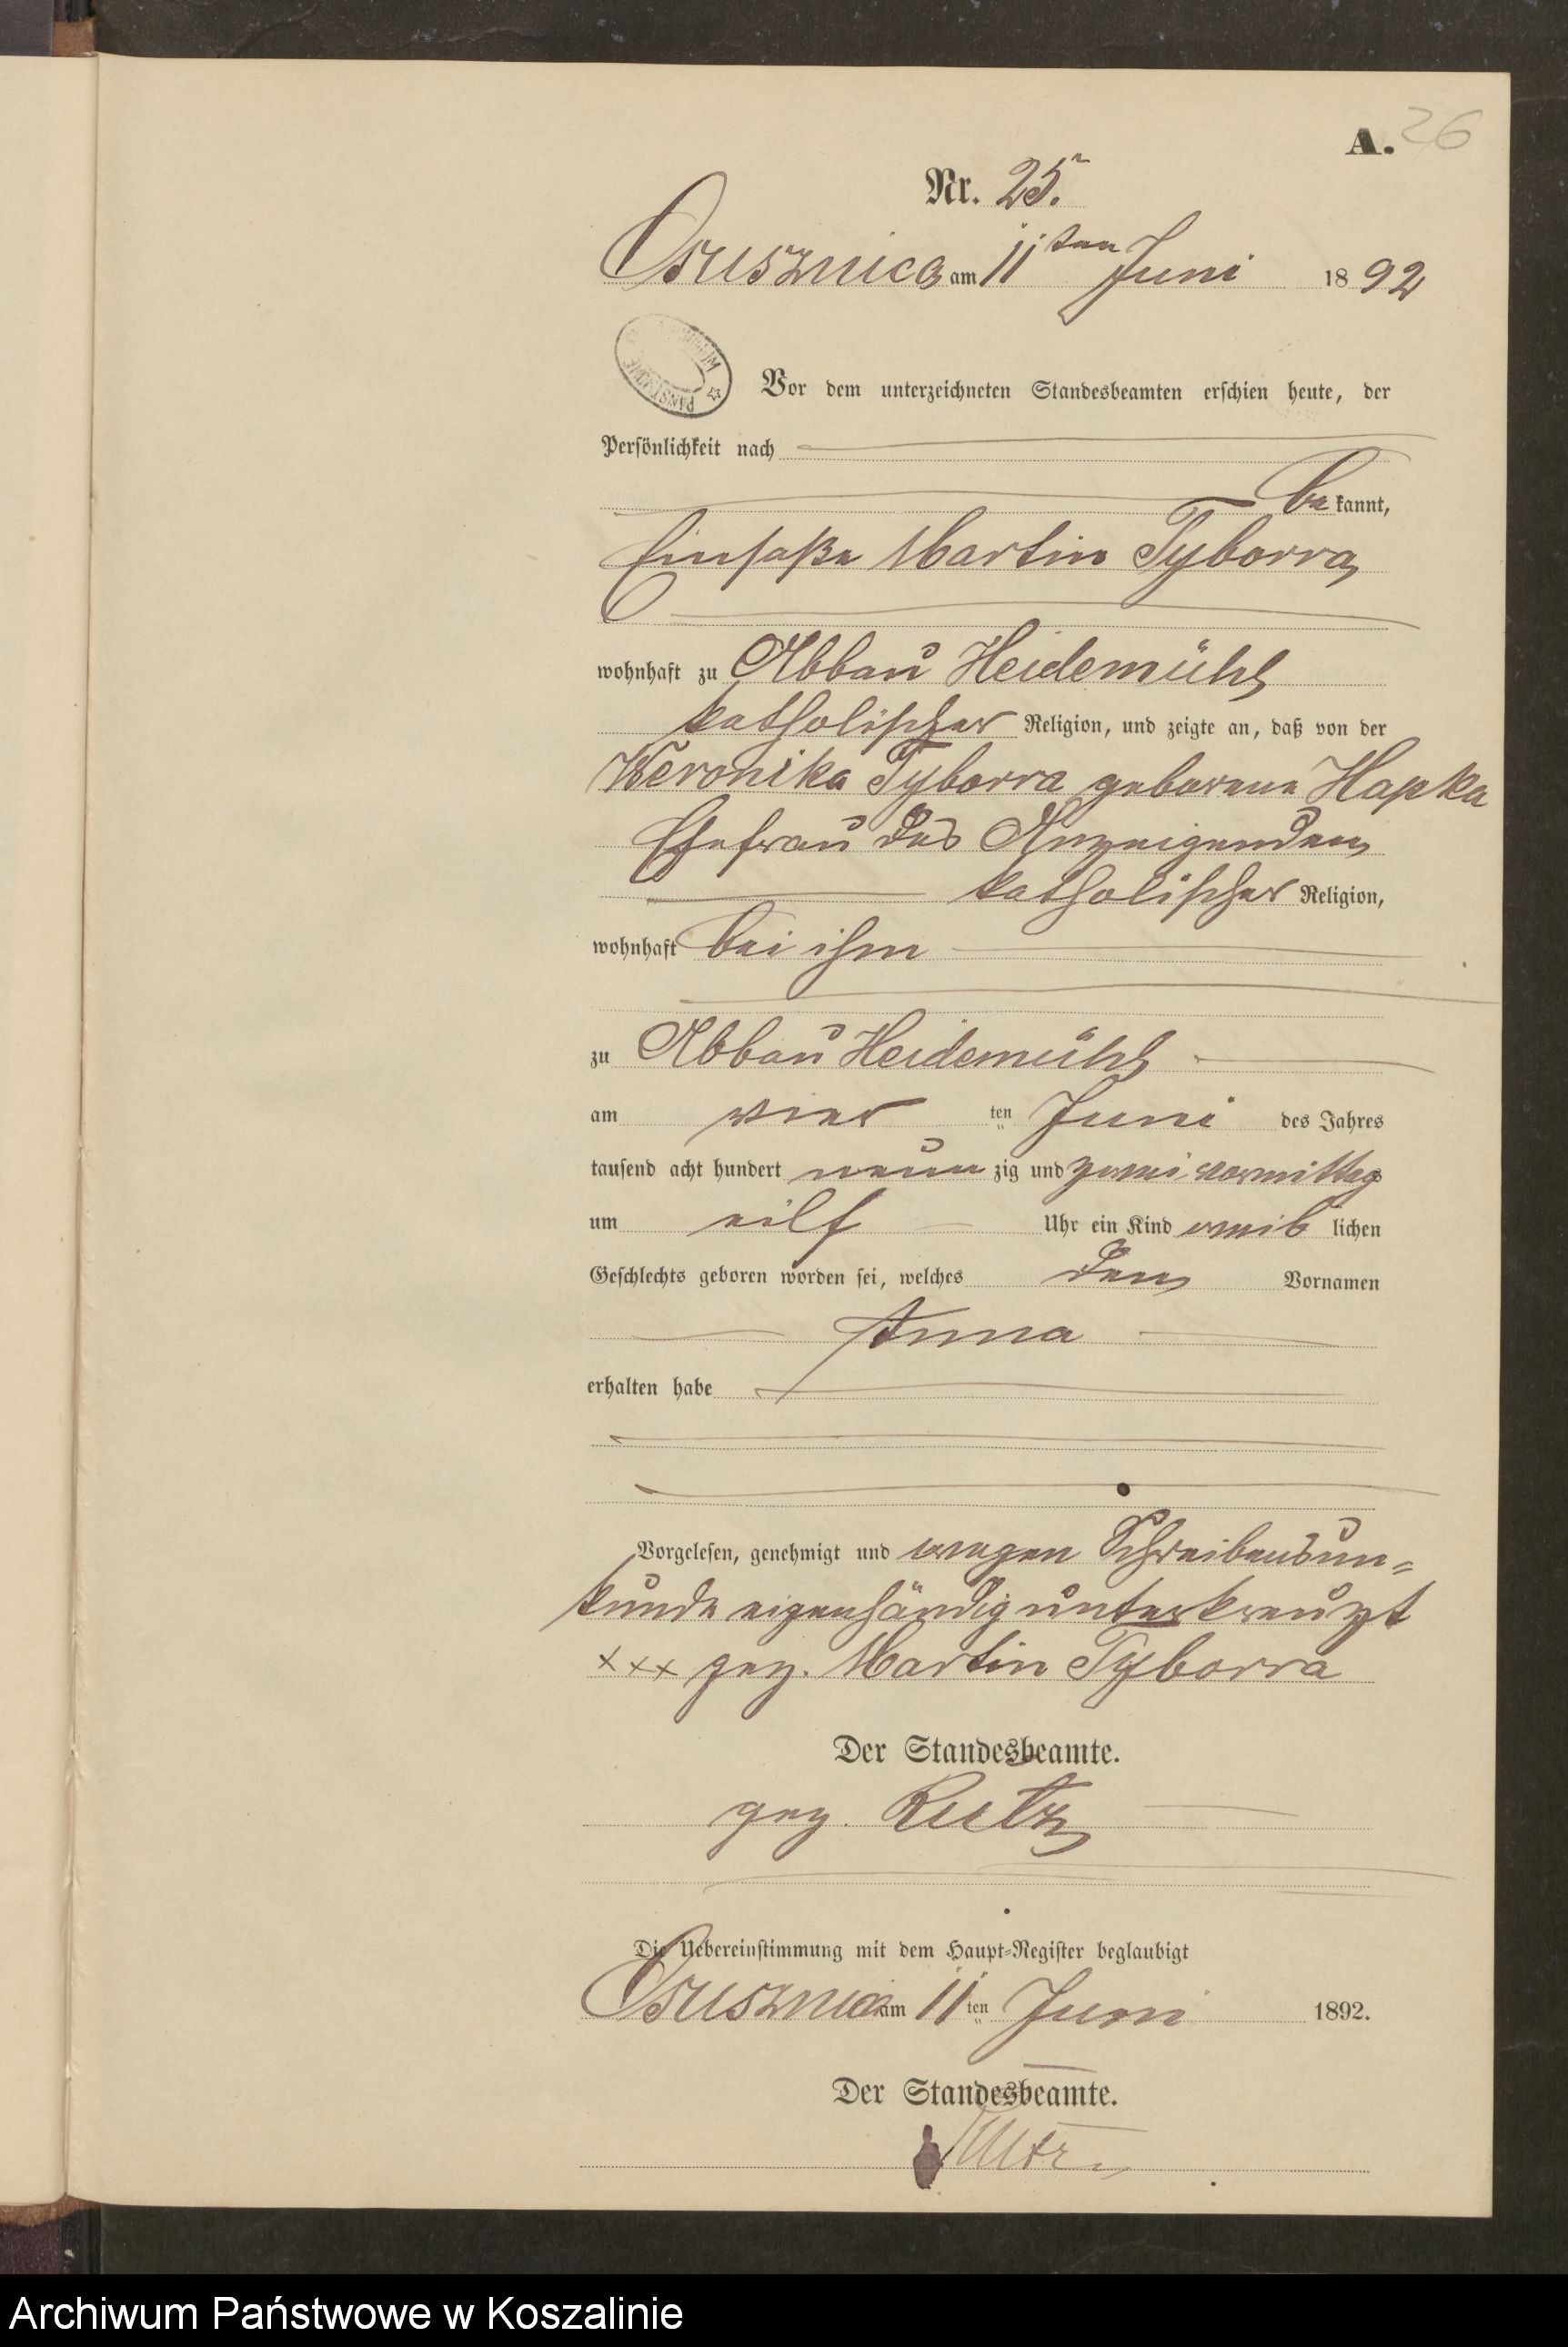 A. 26
Nr. 25.
Osusznica am 11ten Juni 1892
Vor dem unterzeichneten Standesbeamten erschien heute, der
Persönlichkeit nach
bekannt,
Einsaße Martin Tyborra
wohnhaft zu Abbau Heidemühl
katholischer Religion, und zeigte an, daß von der
Weronika Tyborra geborene Hapka
Ehefrau des Anzeigenden
katholischer Religion,
wohnhaft bei ihm
zu Abbau Heidemühl
am vier ten Juni des Jahres
tausend acht hundert neunzig und zwei vormittag
um eilf Uhr ein Kind weiblichen
Geschlechts geboren worden sei, welches den Vornamen
Anna
erhalten habe
Vorgelesen, genehmigt und wegen Schreibensun-
kunde eigenhändig unterkreuzt
xxx gez. Martin Tyborra
Der Standesbeamte.
gez. Rutz
Die Uebereinstimmung mit dem Haupt-Register beglaubigt
Osusznica am 11 ten Juni 1892.
Der Standesbeamte.
Rutz
Archiwum Państwowe w Koszalinie